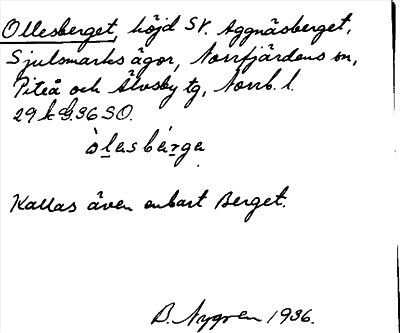 Ollesberget, höjd SV. Aggnäsberget,
Sjulsmarks ägor, Norrfjärdens sn,
Piteå och Älvsby tg, Norrb. l.
29 k G. 36 SO.
òlasbárga
Kallas även enbart Berget.
B. Nygren 1936.